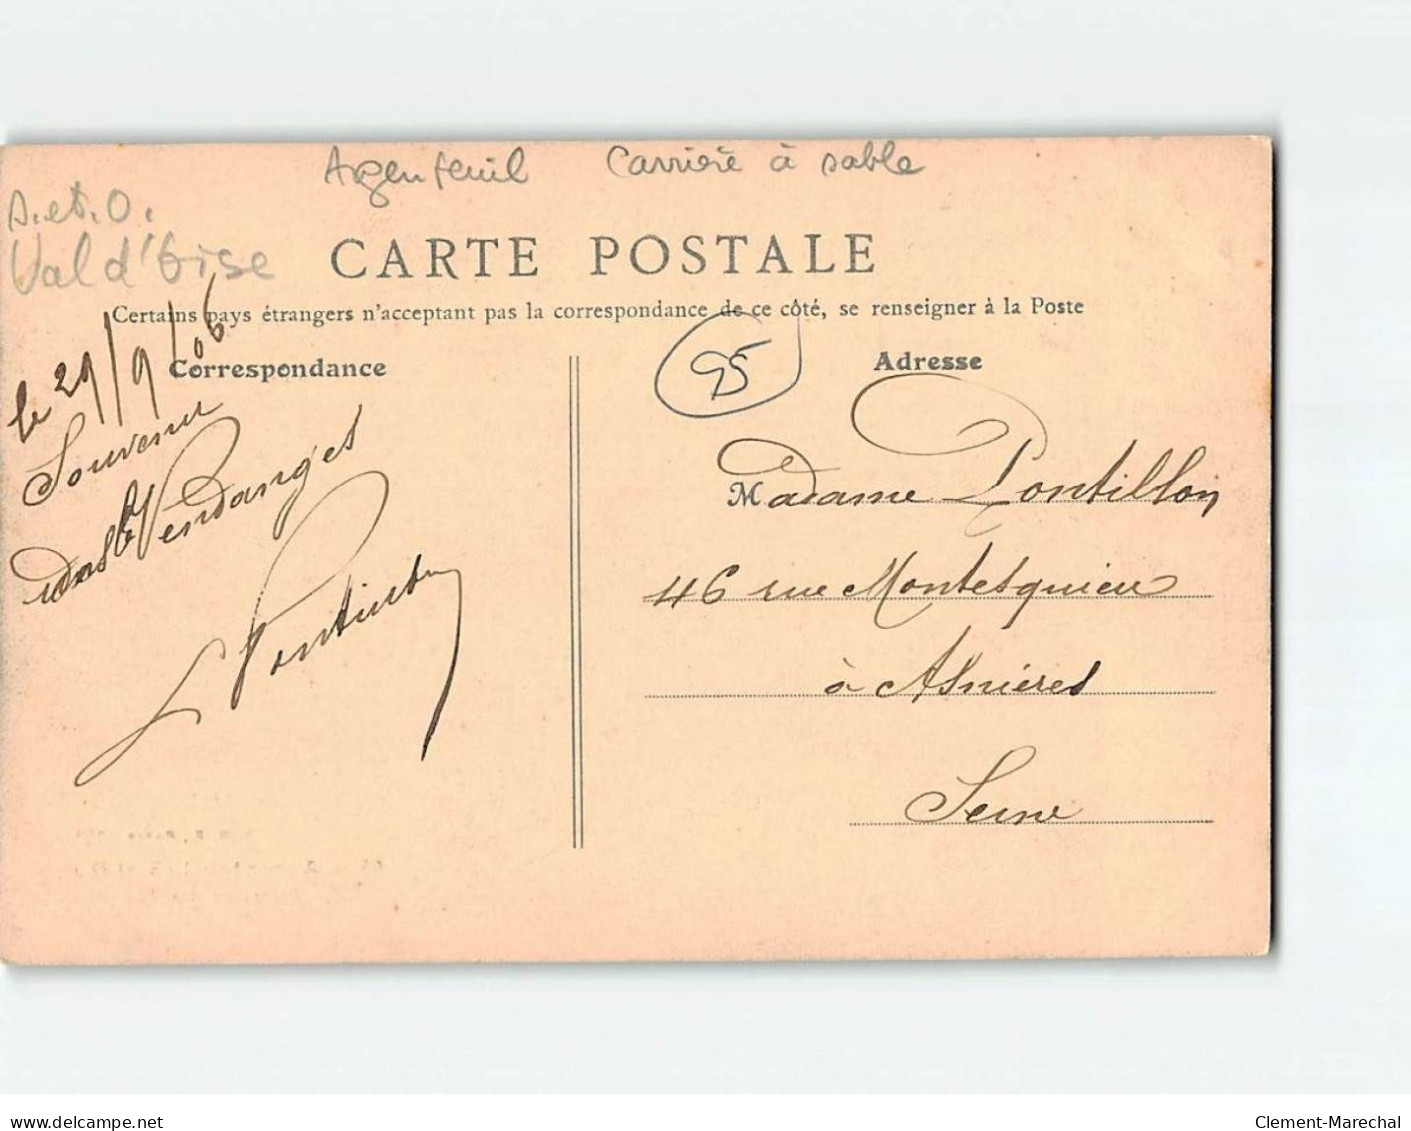 Argenteuil Carrière à sable
S.et.O.
Val d'Oise
CARTE POSTALE
Certains pays étrangers n'acceptant pas la correspondance de ce côté, se renseigner à la Poste
le 29/9/06
Correspondance
Souvenir
des Vendanges
95
Adresse
Madame Pontillon
46 rue Montesquieu
à Asnières
Seine
delcampe.net
Clement-Marechal